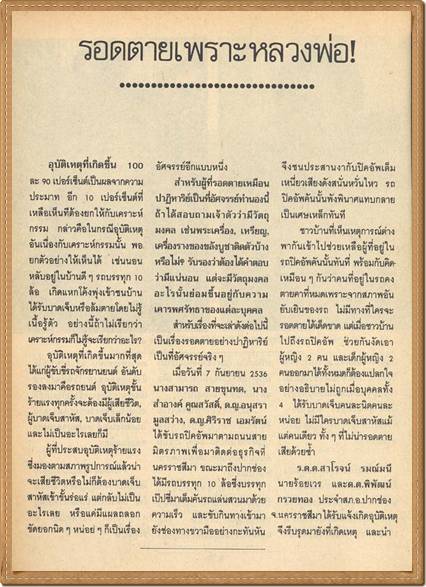 รอดตายเพราะหลวงพ่อ!
อุบัติเหตุที่เกิดขึ้น 100
ละ 90 เปอร์เซ็นต์เป็นผลจากความ
ประมาท อีก 10 เปอร์เซ็นต์ที่
เหลือเห็นทีต้องยกให้กับเคราะห์
กรรม กล่าวคือในกรณีอุบัติเหตุ
อันเนื่องกับเคราะห์กรรมนั้น พอ
ยกตัวอย่างให้เห็นได้ เช่นนอน
หลับอยู่ในบ้านดี ๆ รถบรรทุก 10
ล้อ เกิดแหกโค้งพุ่งเข้าชนบ้าน
ได้รับบาดเจ็บหรือล้มตายโดยไม่รู้
เนื้อรู้ตัว อย่างนี้ถ้าไม่เรียกว่า
เคราะห์กรรมก็ไม่รู้จะเรียกว่าอะไร?
อุบัติเหตุที่เกิดขึ้นมากที่สุด
ได้แก่ผู้ขับขี่รถจักรยานยนต์ อันดับ
รองลงมาคือรถยนต์ อุบัติเหตุขั้น
ร้ายแรงทุกครั้งจะต้องมีผู้เสียชีวิต,
ผู้บาดเจ็บสาหัส, บาดเจ็บเล็กน้อย
และไม่เป็นอะไรเลยก็มี
ผู้ที่ประสบอุบัติเหตุร้ายแรง
ซึ่งมองตามสภาพรูปการณ์แล้วน่า
จะเสียชีวิตหรือไม่ก็ต้องบาดเจ็บ
สาหัสเข้าขั้นร่อแร่ แต่กลับไม่เป็น
อะไรเลย หรือแค่มีแผลถลอก
ขัดยอกนิด ๆ หน่อย ๆ ก็เป็นเรื่อง
อัศจรรย์อีกแบบหนึ่ง
สำหรับผู้ที่รอดตายเหมือน
ปาฏิหาริย์เป็นที่อัศจรรย์ทำนองนี้
ถ้าได้สอบถามเจ้าตัวว่ามีวัตถุ
มงคล เช่นพระเครื่อง, เหรียญ,
เครื่องรางของขลังบูชาติดตัวบ้าง
หรือไม่? รับรองว่าต้องได้คำตอบ
ว่ามีแน่นอน แต่จะมีวัตถุมงคล
อะไรนั้นย่อมขึ้นอยู่กับความ
เคารพศรัทธาของแต่ละบุคคล
สำหรับเรื่องที่จะเล่าดังต่อไปนี้
เป็นเรื่องรอดตายอย่างปาฏิหาริย์
เป็นที่อัศจรรย์จริง ๆ
เมื่อวันที่ 7 กันยายน 2536
นางสามารถ สายขุนทด, นาง
สำอางค์ คูณสวัสดิ์, ด.ญ.อนุสรา
มูลสว่าง, ด.ญ.ศิริราช เอมรัตน์
ได้ขับรถปิคอัพมาตามถนนสาย
มิตรภาพเพื่อมาติดต่อธุรกิจที่
นครราชสีมา ขณะมาถึงปากช่อง
ได้มีรถบรรทุก 10 ล้อซึ่งบรรทุก
เป๊ปซี่มาเต็มคันรถแล่นสวนมาด้วย
ความเร็ว และขับกินทางเข้ามา
ยังช่องทางขวามืออย่างกะทันหัน
จึงชนประสานงากับปิคอัพเต็ม
เหนี่ยวเสียงดังสนั่นหวั่นไหว รถ
ปิคอัพคันนั้นพังพินาศแทบกลาย
เป็นเศษเหล็กทันที
ชาวบ้านที่เห็นเหตุการณ์ต่าง
พากันเข้าไปช่วยเหลือผู้ที่อยู่ใน
รถปิคอัพคันนั้นทันที พร้อมกับคิด
เหมือน ๆ กันว่าคนที่อยู่ในรถคง
ตายคาที่หมดเพราะจากสภาพอัน
ยับเยินของรถ ไม่มีทางที่ใครจะ
รอดตายได้เด็ดขาด แต่เมื่อชาวบ้าน
ไปถึงรถปิคอัพ ช่วยกันงัดเอา
ผู้หญิง 2 คน และเด็กผู้หญิง 2
คนออกมาได้ทั้งหมดก็ต้องแปลกใจ
อย่างอธิบายไม่ถูกเมื่อบุคคลทั้ง
4 ได้รับบาดเจ็บคนละนิดคนละ
หน่อย ไม่มีใครบาดเจ็บสาหัสแม้
แต่คนเดียว ทั้ง ๆ ที่ไม่น่ารอดตาย
เสียด้วยซ้ำ
ร.ต.ต.สาโรจน์ รมณ์มณี
นายร้อยเวร และด.ต.พิพัฒน์
กรวยทอง ประจำส.ภ.อ.ปากช่อง
จ.นครราชสีมาได้รับแจ้งเกิดอุบัติเหตุ
จึงรีบรุดมายังที่เกิดเหตุ และนำ